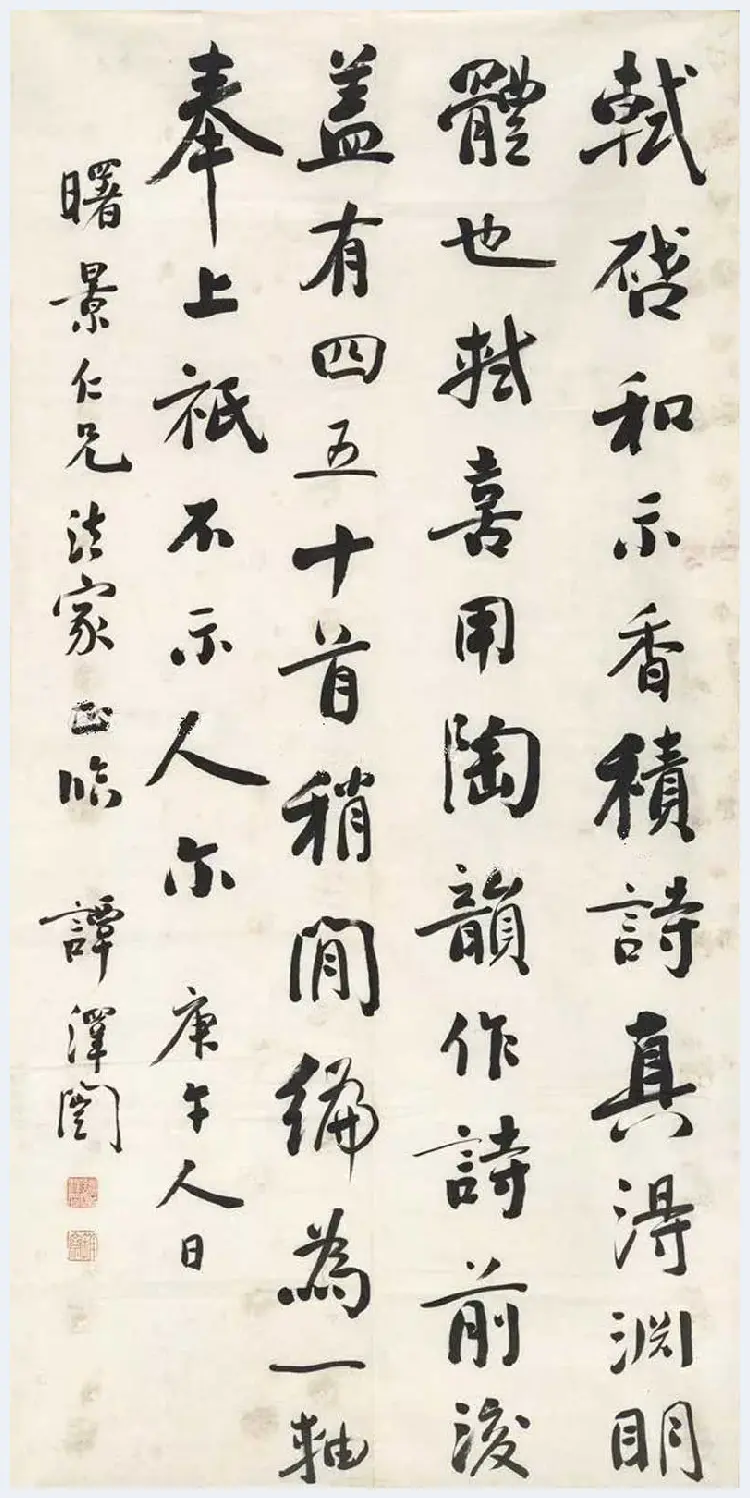 軾啓和示香積詩真得淵明
體也軾喜用陶韻作詩前後
蓋有四五十首稍閒編為一軸
奉上祇不示人尔 庚午人日
曙景仁兄法家正臨 譚澤闓